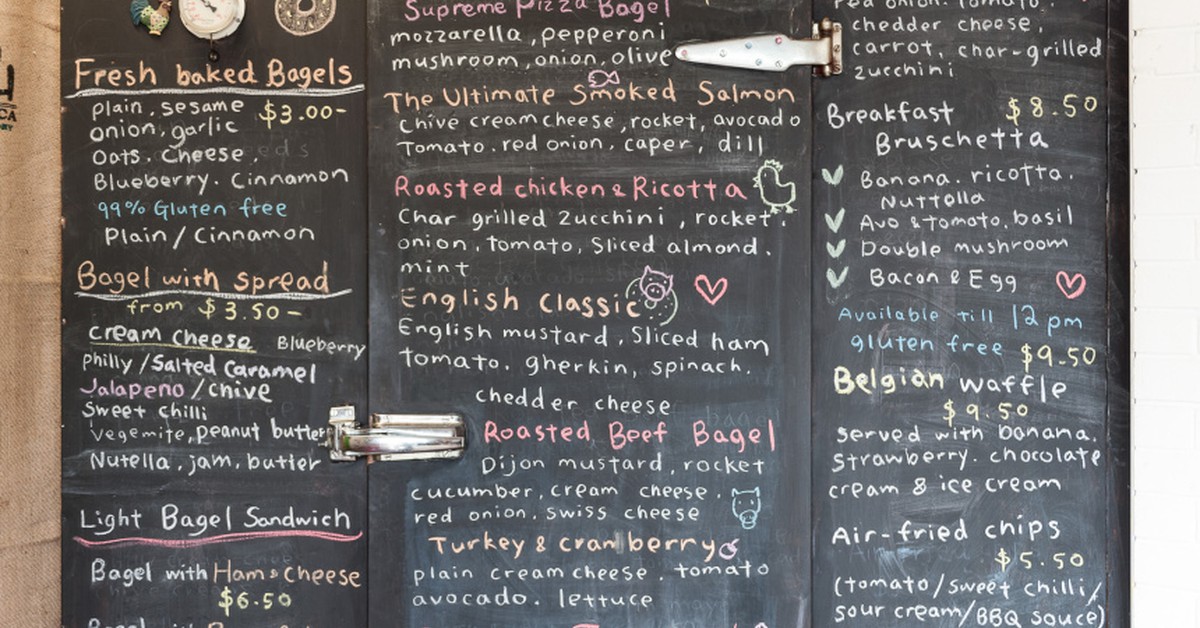 Fresh baked Bagels
plain, sesame $3.00-
onion, garlic
Oats. Cheese.
Blueberry. Cinnamon
99% Gluten free
Plain / Cinnamon
Bagel with spread
from $3.50-
cream cheese Blueberry
philly / Salted Caramel
Jalapeno / chive
Sweet chilli
Vegemite, peanut butter
Nutella, jam, butter
Light Bagel Sandwich
Bagel with Ham & Cheese
$6.50
Supreme Pizza Bagel
mozzarella, pepperoni
mushroom, onion, olive
The Ultimate Smoked Salmon
Chive cream cheese, rocket, avocado
Tomato. red onion, caper, dill
Roasted chicken & Ricotta
Char grilled Zucchini, rocket,
onion, tomato, Sliced almond.
mint
English Classic
English mustard, Sliced ham
tomato. gherkin, spinach.
chedder cheese
Roasted Beef Bagel
Dijon mustard, rocket
cucumber, cream cheese.
red onion. swiss cheese
Turkey & cranberry
plain cream cheese. tomato
avocado. lettuce
red onion. tomato.
chedder cheese,
carrot, char-grilled
zucchini
Breakfast $8.50
Bruschetta
Banana. ricotta.
Nuttella
Avo & tomato. basil
Double mushroom
Bacon & Egg
Available till 12 pm
gluten free $9.50
Belgian waffle
$9.50
served with banana.
strawberry. chocolate
cream & ice cream
Air-fried chips
$5.50
(tomato/sweet chilli/
sour cream/BBQ sauce)